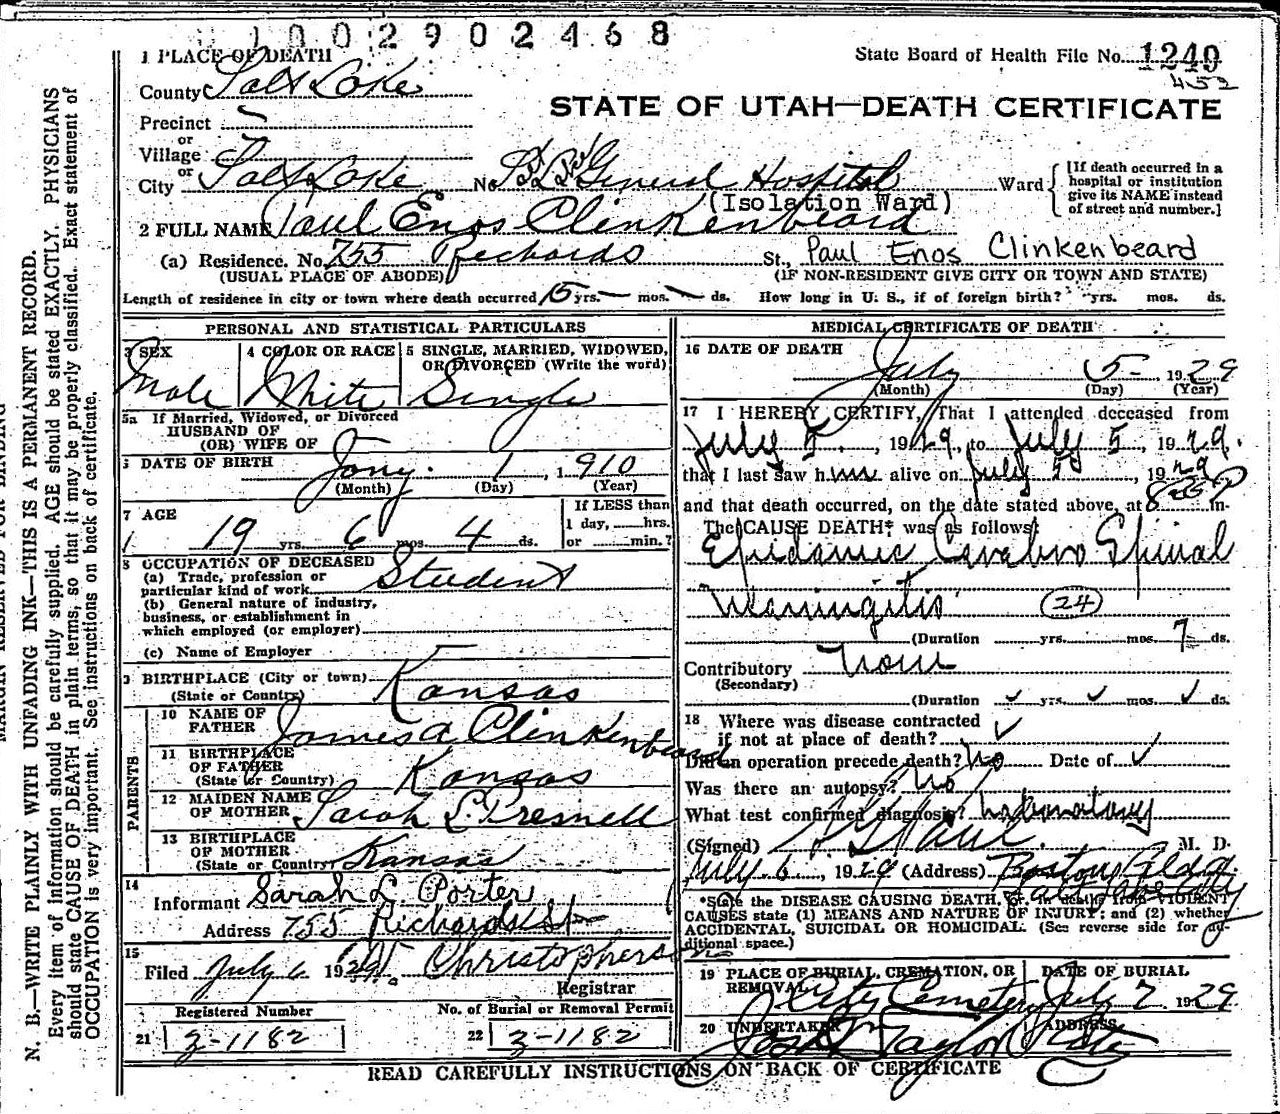 1002902468
1 PLACE OF DEATH
State Board of Health File No. 1240
452
County Salt Lake
STATE OF UTAH—DEATH CERTIFICATE
Precinct
or
Village
or
City Salt Lake No. Salt Lake General Hospital Ward
[If death occurred in a hospital or institution give its NAME instead of street and number.]
(Isolation Ward)
2 FULL NAME Paul Enos Clinkenbeard
(a) Residence. No. 755 Richards St., Paul Enos Clinkenbeard
(USUAL PLACE OF ABODE) (IF NON-RESIDENT GIVE CITY OR TOWN AND STATE)
Length of residence in city or town where death occurred 15 yrs. — mos. — ds. How long in U. S., if of foreign birth? yrs. mos. ds.
PERSONAL AND STATISTICAL PARTICULARS
3 SEX 4 COLOR OR RACE 5 SINGLE, MARRIED, WIDOWED,
OR DIVORCED (Write the word)
Male White Single
5a If Married, Widowed, or Divorced
HUSBAND OF
(OR) WIFE OF
6 DATE OF BIRTH Jany. 1 1910
(Month) (Day) (Year)
7 AGE If LESS than
1 day, hrs.
19 yrs. 6 mos. 4 ds. or min.?
8 OCCUPATION OF DECEASED
(a) Trade, profession or
particular kind of work Student
(b) General nature of industry,
business, or establishment in
which employed (or employer)
(c) Name of Employer
9 BIRTHPLACE (City or town)
(State or Country) Kansas
PARENTS
10 NAME OF
FATHER James A Clinkenbeard
11 BIRTHPLACE
OF FATHER
(State or Country) Kansas
12 MAIDEN NAME
OF MOTHER Sarah L. Presnell
13 BIRTHPLACE
OF MOTHER
(State or Country) Kansas
14
Informant Sarah L Porter
Address 755 Richards St
15
Filed July 6 1929 Christopherson
Registrar
Registered Number No. of Burial or Removal Permit
21 3-1182 22 3-1182
MEDICAL CERTIFICATE OF DEATH
16 DATE OF DEATH
July 5 1929
(Month) (Day) (Year)
17 I HEREBY CERTIFY, That I attended deceased from
July 5, 1929, to July 5, 1929.
that I last saw him alive on July 5, 1929
and that death occurred, on the date stated above, at m.
The CAUSE DEATH* was as follows:
Epidemic Cerebro Spinal
Meningitis (24)
(Duration yrs. mos. 7 ds.
Contributory None
(Secondary)
(Duration yrs. mos. ds.
18 Where was disease contracted
if not at place of death?
Did an operation precede death? No Date of
Was there an autopsy? No
What test confirmed diagnosis? Laboratory
(Signed) M. D.
July 6, 1929 (Address) Boston Bldg.
Salt Lake City
*State the DISEASE CAUSING DEATH, or, in deaths from VIOLENT
CAUSES state (1) MEANS AND NATURE OF INJURY; and (2) whether
ACCIDENTAL, SUICIDAL OR HOMICIDAL. (See reverse side for ad-
ditional space.)
19 PLACE OF BURIAL, CREMATION, OR DATE OF BURIAL
REMOVAL City Cemetery July 7 1929
20 UNDERTAKER ADDRESS
Taylor
READ CAREFULLY INSTRUCTIONS ON BACK OF CERTIFICATE
MARGIN RESERVED FOR BINDING
N. B.—WRITE PLAINLY WITH UNFADING INK—THIS IS A PERMANENT RECORD.
Every item of information should be carefully supplied. AGE should be stated EXACTLY. PHYSICIANS
should state CAUSE OF DEATH in plain terms, so that it may be properly classified. Exact statement of
OCCUPATION is very important. See instructions on back of certificate.